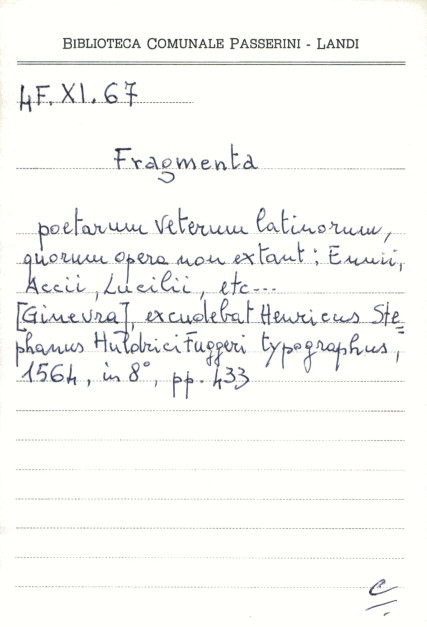 BIBLIOTECA COMUNALE PASSERINI - LANDI
4F. XI. 67
Fragmenta
poetarum veterum latinorum,
quorum opera non extant: Ennii,
Accii, Lucilii, etc...
[Ginevra], excudebat Henricus Ste=
phanus Huldrici Fuggeri typographus,
1564, in 8°, pp. 433
C